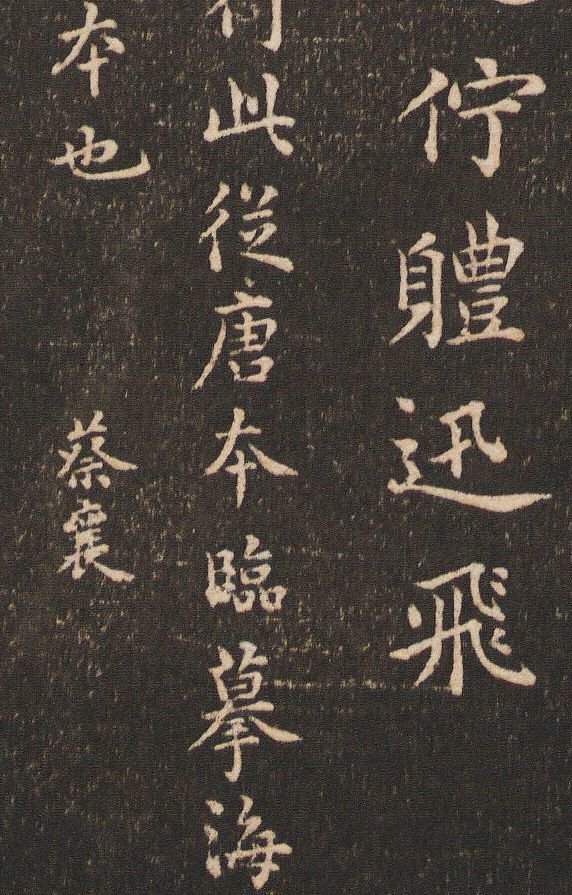 佇軆迅飛
此従唐本臨摹海
本也　蔡襄